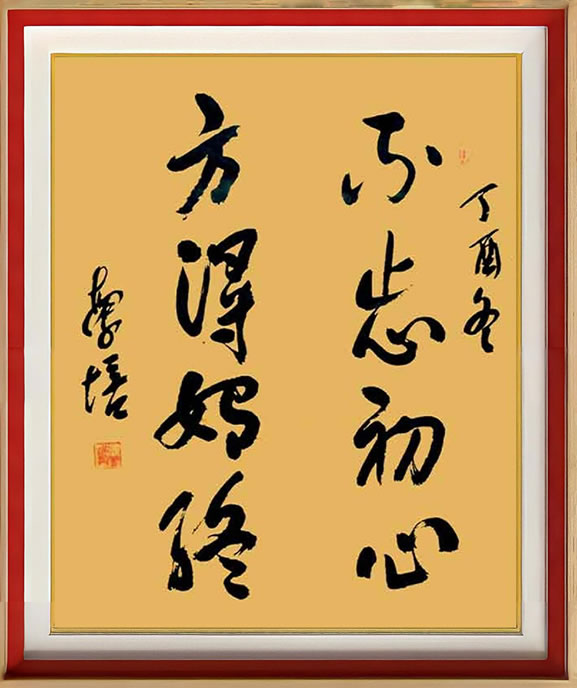 丁酉冬
不忘初心
方得始終
培